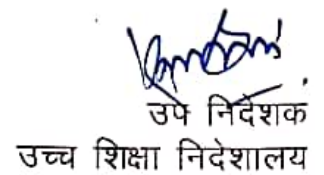 उप निदेशक
उच्च शिक्षा निदेशालय